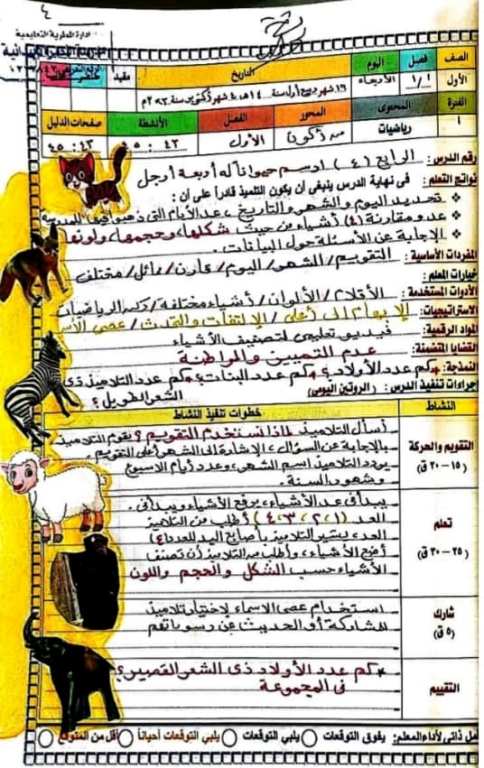 ٤
إدارة المطرية التعليمية
الصف
فصل
اليوم
التاريخ
مقيد
حاضر
غائب
الأول
١/١
الأربعاء
١٦ شهر ربيع أول سنة ١٤ هـ
شهر أكتوبر سنة ٢٠٢ م
الفترة
المحتوى
المحور
الفصل
الأنشطة
صفحات الدليل
١
رياضيات
من أكون
الأول
٤٣ : ٤٥
٤٣ : ٤٥
رقم الدرس : الرابع (٤) ارسم حيواناً له أربعة أرجل
نواتج التعلم : في نهاية الدرس ينبغي أن يكون التلميذ قادراً على أن :
تحديد اليوم والشهر والتاريخ، عد الأيام التى ذهبوا فيها للمدرسة
عد ومقارنة (٤) أشياء من حيث شكلها، وحجمها، ولونها
الإجابة عن الأسئلة حول البيانات .
المفردات الأساسية : التقويم / الشهر / اليوم / قارن / مختلف
خيارات المعلم :
الأدوات المستخدمة : الأقلام / الألوان / أشياء مختلفة / الرياضيات
الاستراتيجيات : الإبهام إلى أعلى / الإلتفات والتحدث / عصى
المواد الرقمية : فيديو تعليمى لتصنيف الأشياء
القضايا المتضمنة : عدم التمييز والمواطنة
النمذجة : كم عدد الأولاد؟ كم عدد البنات؟ كم عدد التلاميذ ذى
إجراءات تنفيذ الدرس : (الروتين اليومى) الشعر الطويل؟
النشاط
خطوات تنفيذ النشاط
التقويم والحركة
(١٥ – ٢٠ ق)
أسأل التلاميذ لماذا نستخدم التقويم؟ يقوم التلاميذ
بالإجابة عن السؤال، الإشارة إلى الشهر أعلى التقويم .
يردد التلاميذ اسم الشهر، وعدد أيام الاسبوع
وشهور السنة .
تعلم
(٢٥ – ٣٠ ق)
يبدأ فى عد الأشياء، يرفع الأشياء ويبدأ فى
العد (١،٢،٣،٤) أطلب من التلاميذ
العد، يشير التلاميذ بأصابع اليد للعدد (٤)
أضع الأشياء، وأطلب من التلاميذ أن تصنف
الأشياء حسب الشكل والحجم واللون
شارك
(٥ ق)
استخدام عصى الاسماء لاختيار تلاميذ
للمشاركة أو الحديث عن رسوماتهم
التقييم
كم عدد الأولاد ذى الشعر القصير؟
فى المجموعة
ذاتي لأداء المعلم : يفوق التوقعات
يلبي التوقعات
يلبي التوقعات أحياناً
أقل من المتوقع